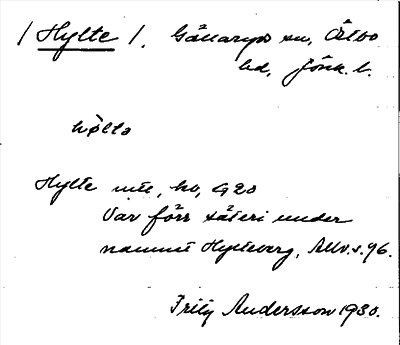 / Hylte /. Gällaryds sn, Östbo
hd, Jönk. l.
hølta
Hylte mtl, by, G20
Var förr säteri under
namnet Hylteberg, Allv. s. 96.
Frily Andersson 1930.